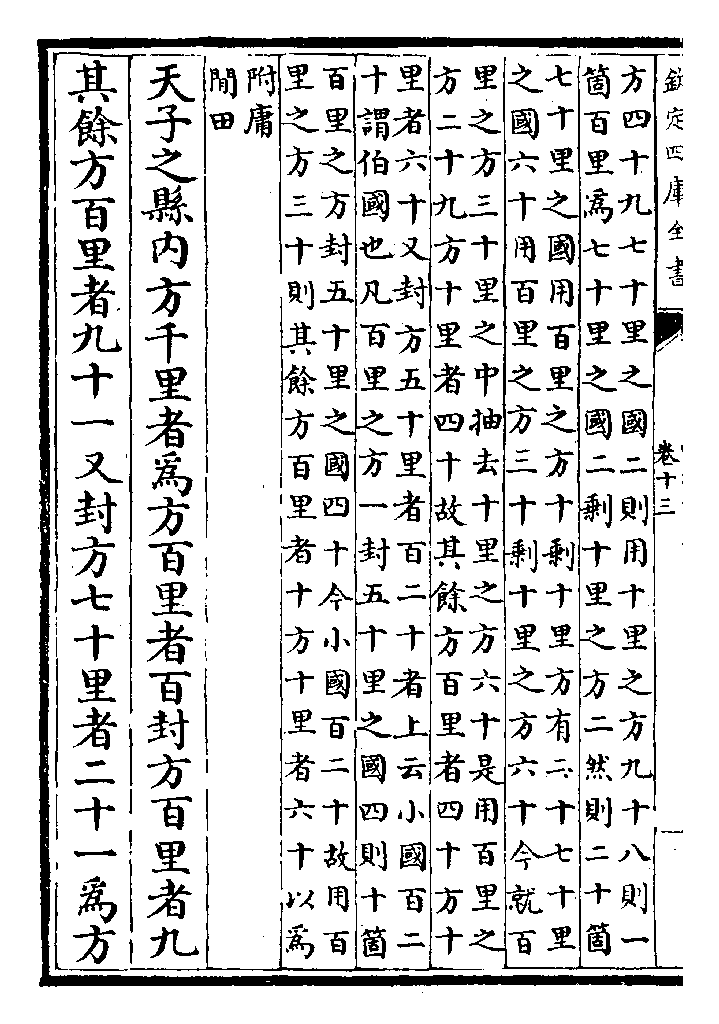 欽定四庫全書
卷十三
方四十九七十里之國二則用十里之方九十八則一
箇百里爲七十里之國二剩十里之方二然則二十箇
七十里之國用百里之方十剩十里方有二十七十里
之國六十用百里之方三十剩十里之方六十今就百
里之方三十里之中抽去十里之方六十是用百里之
方二十九方十里者四十故其餘方百里者四十方十
里者六十又封方五十里者百二十者上云小國百二
十謂伯國也凡百里之方一封五十里之國四則十箇
百里之方封五十里之國四十今小國百二十故用百
里之方三十則其餘方百里者十方十里者六十以爲
附庸
閒田
天子之縣内方千里者爲方百里者百封方百里者九
其餘方百里者九十一又封方七十里者二十一爲方